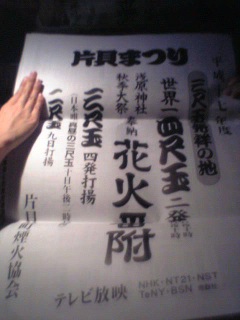 片貝まつり
平成十七年度
三尺玉発祥の地
世界一四尺玉二発
浅原神社
秋季大祭
奉納
花火番附
三尺玉四発打揚
二尺玉
九日打揚
片貝町煙火協会
テレビ放映
NHK・NT21・NST
TeNY・BSN